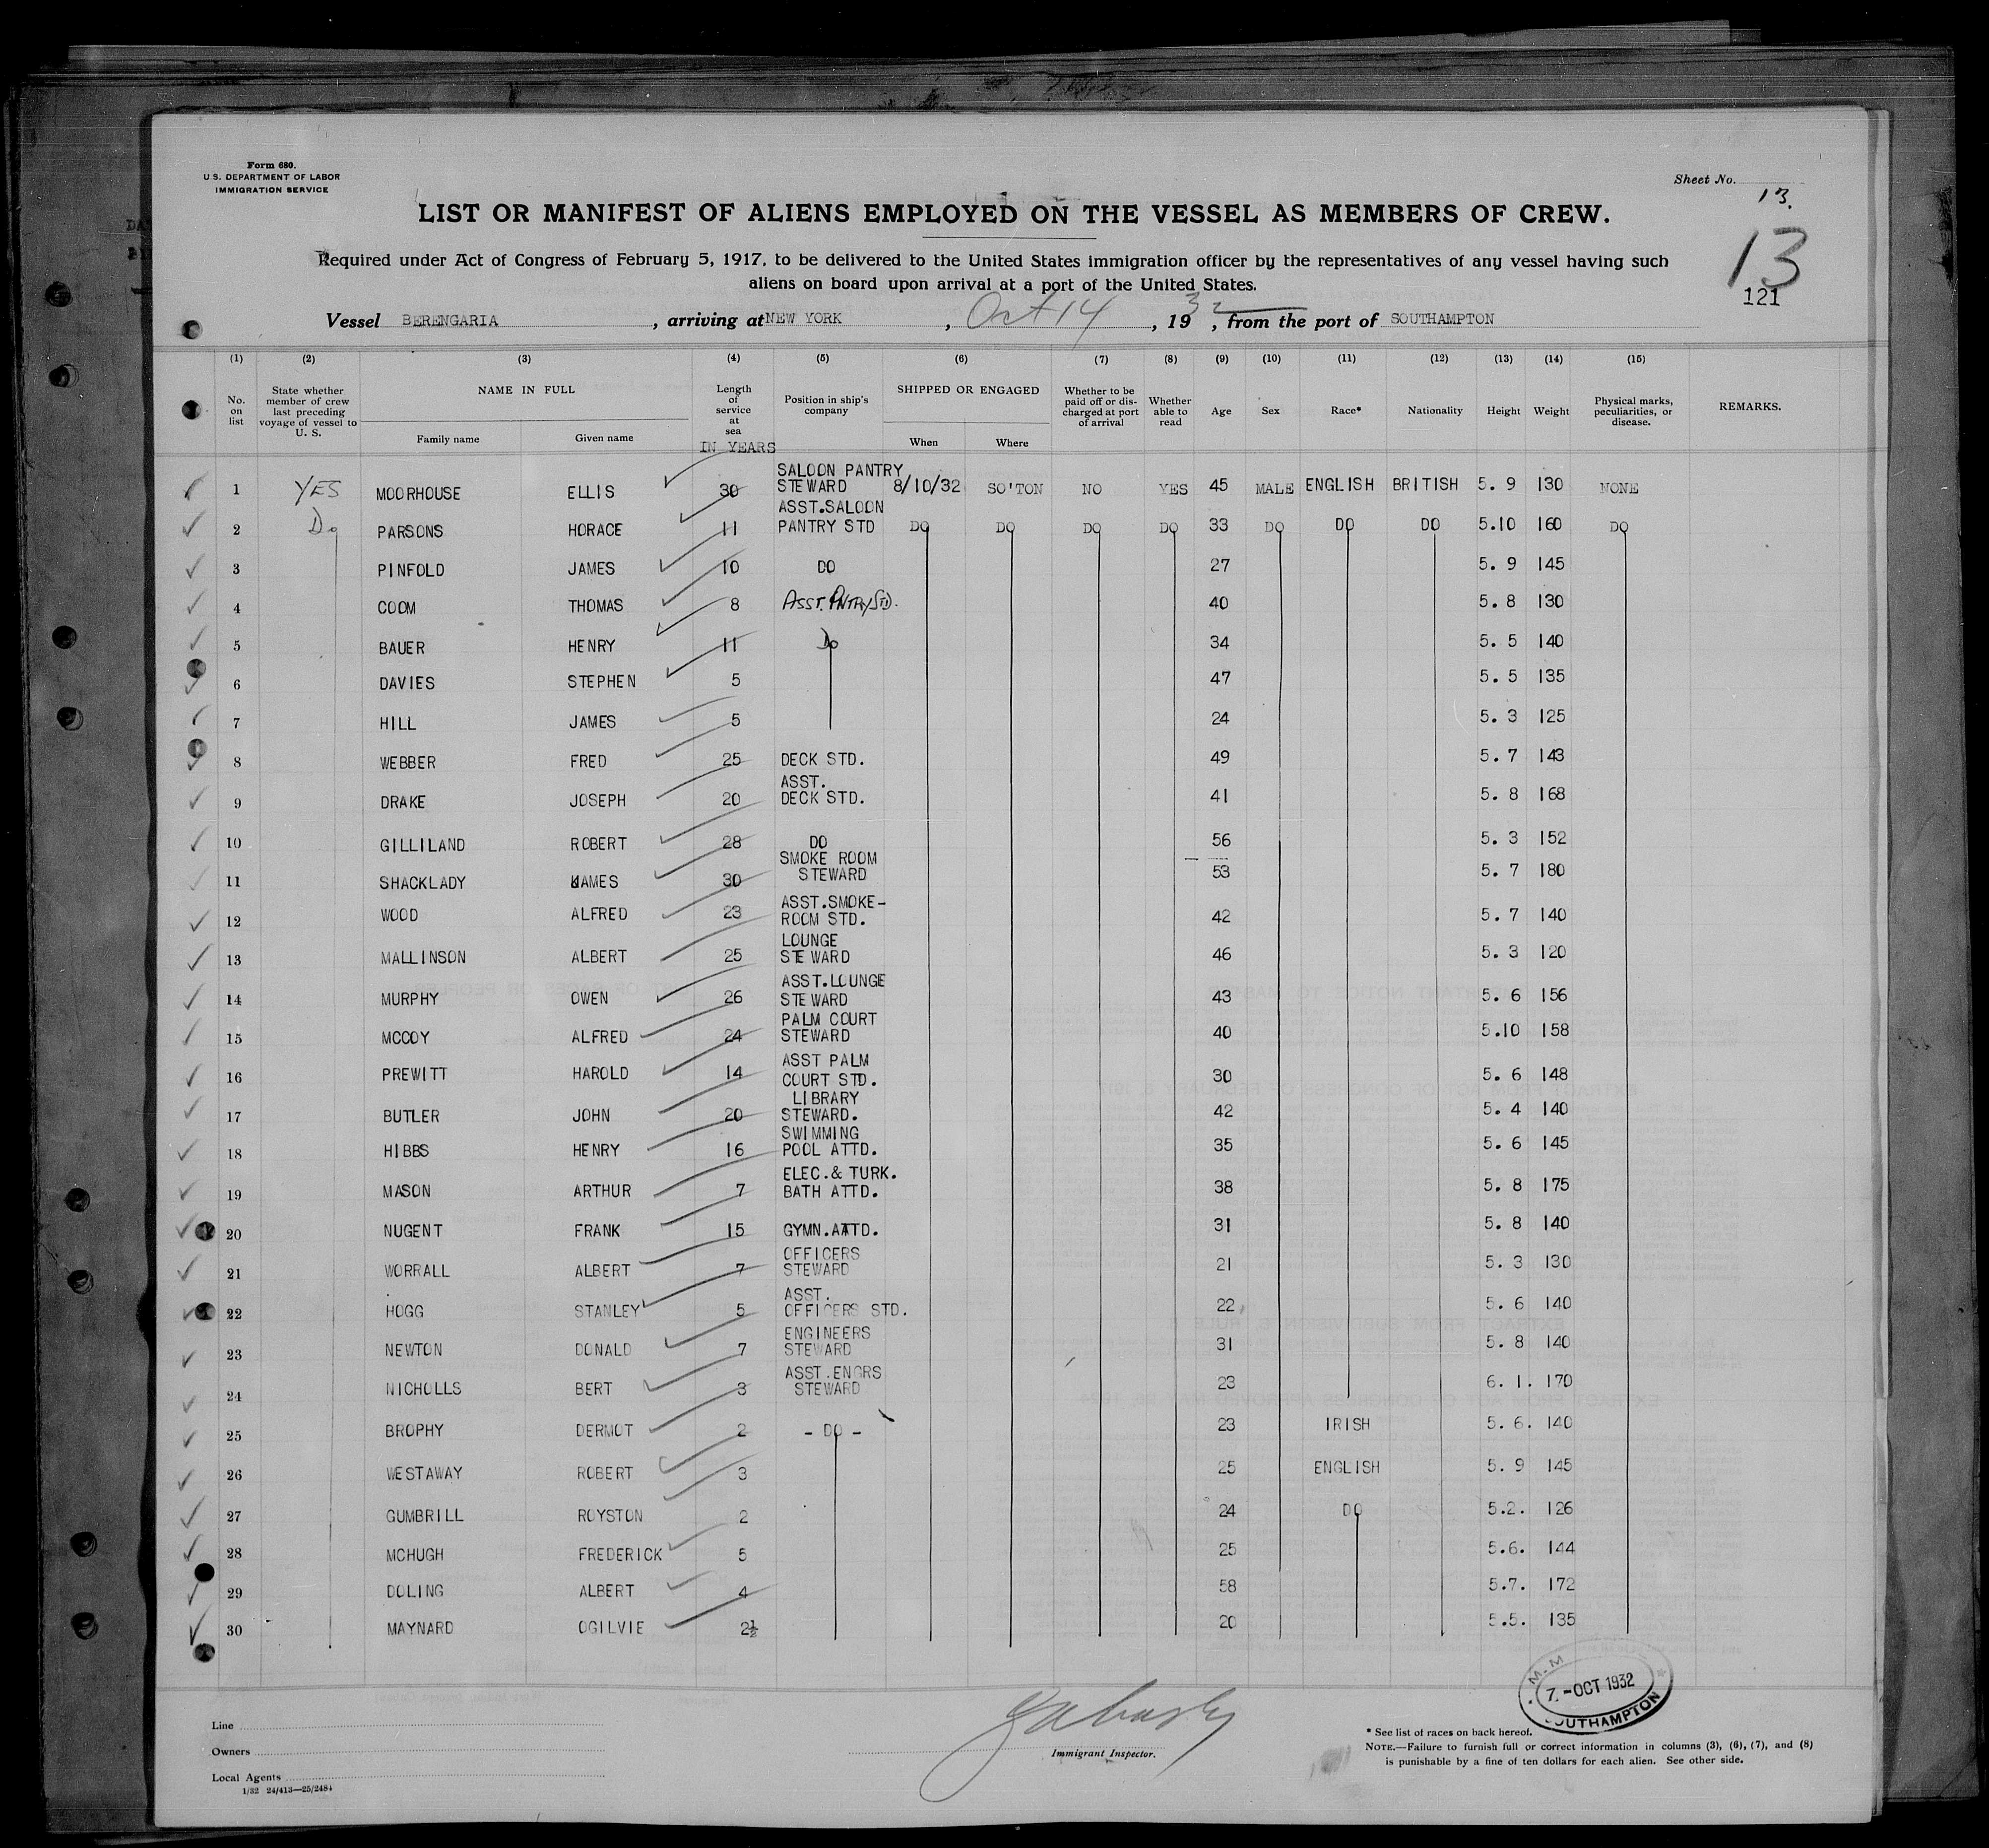 Form 680.
U.S. DEPARTMENT OF LABOR
IMMIGRATION SERVICE
Sheet No. 13.
LIST OR MANIFEST OF ALIENS EMPLOYED ON THE VESSEL AS MEMBERS OF CREW.
13
Required under Act of Congress of February 5, 1917, to be delivered to the United States immigration officer by the representatives of any vessel having such
aliens on board upon arrival at a port of the United States.
121
Vessel BERENGARIA, arriving at NEW YORK, Oct 14, 1932, from the port of SOUTHAMPTON
(1) (2) (3) (4) (5) (6) (7) (8) (9) (10) (11) (12) (13) (14) (15)
No. on list State whether member of crew last preceding voyage of vessel to U. S. NAME IN FULL Family name Given name Length of service at sea IN YEARS Position in ship's company SHIPPED OR ENGAGED When Where Whether to be paid off or discharged at port of arrival Whether able to read Age Sex Race* Nationality Height Weight Physical marks, peculiarities, or disease. REMARKS.
1 YES MOORHOUSE ELLIS 30 SALOON PANTRY STEWARD 8/10/32 SO'TON NO YES 45 MALE ENGLISH BRITISH 5. 9 130 NONE
2 Do PARSONS HORACE 11 ASST.SALOON PANTRY STD DO DO DO DO 33 DO DO DO 5.10 160 DO
3 PINFOLD JAMES 10 DO 27 5. 9 145
4 COOM THOMAS 8 ASST. PNTRY STD. 40 5. 8 130
5 BAUER HENRY 11 Do 34 5. 5 140
6 DAVIES STEPHEN 5 47 5. 5 135
7 HILL JAMES 5 24 5. 3 125
8 WEBBER FRED 25 DECK STD. 49 5. 7 143
9 DRAKE JOSEPH 20 ASST. DECK STD. 41 5. 8 168
10 GILLILAND ROBERT 28 DO 56 5. 3 152
11 SHACKLADY JAMES 30 SMOKE ROOM STEWARD 53 5. 7 180
12 WOOD ALFRED 23 ASST.SMOKE-ROOM STD. 42 5. 7 140
13 MALLINSON ALBERT 25 LOUNGE STEWARD 46 5. 3 120
14 MURPHY OWEN 26 ASST.LOUNGE STEWARD 43 5. 6 156
15 MCCOY ALFRED 24 PALM COURT STEWARD 40 5.10 158
16 PREWITT HAROLD 14 ASST PALM COURT STD. 30 5. 6 148
17 BUTLER JOHN 20 LIBRARY STEWARD. 42 5. 4 140
18 HIBBS HENRY 16 SWIMMING POOL ATTD. 35 5. 6 145
19 MASON ARTHUR 7 ELEC.& TURK. BATH ATTD. 38 5. 8 175
20 NUGENT FRANK 15 GYMN.ATTD. 31 5. 8 140
21 WORRALL ALBERT 7 OFFICERS STEWARD 21 5. 3 130
22 HOGG STANLEY 5 ASST. OFFICERS STD. 22 5. 6 140
23 NEWTON DONALD 7 ENGINEERS STEWARD 31 5. 8 140
24 NICHOLLS BERT 3 ASST.ENGRS STEWARD 23 6. 1. 170
25 BROPHY DERMOT 2 - DO - 23 IRISH 5. 6. 140
26 WESTAWAY ROBERT 3 25 ENGLISH 5. 9 145
27 GUMBRILL ROYSTON 2 24 DO 5.2. 126
28 MCHUGH FREDERICK 5 25 5.6. 144
29 DOLING ALBERT 4 58 5.7. 172
30 MAYNARD OGILVIE 2½ 20 5.5. 135
M.M
7.-OCT 1932
SOUTHAMPTON
Line
Owners
Local Agents
1/32 24/413—25/2484
Immigrant Inspector.
* See list of races on back hereof.
NOTE.—Failure to furnish full or correct information in columns (3), (6), (7), and (8)
is punishable by a fine of ten dollars for each alien. See other side.